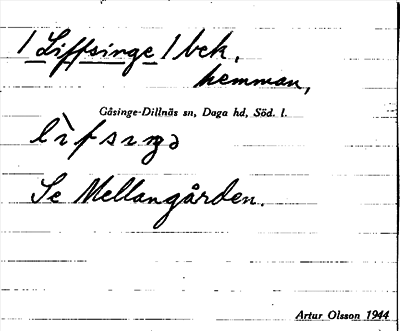 / Liffsinge / bek.
hemman,
Gåsinge-Dillnäs sn, Daga hd, Söd. l.
Se Mellangården.
Artur Olsson 1944